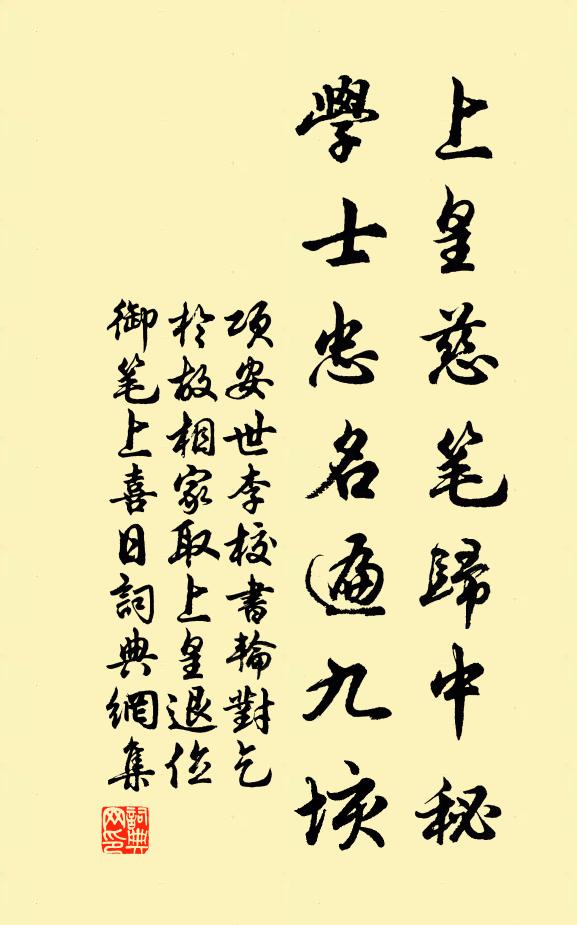 上皇慈笔歸中秘
學士忠名遍九垓
项安世李校書輪對乞
於故相家取上皇退位
御笔上喜日詞典網集
詞典
网印